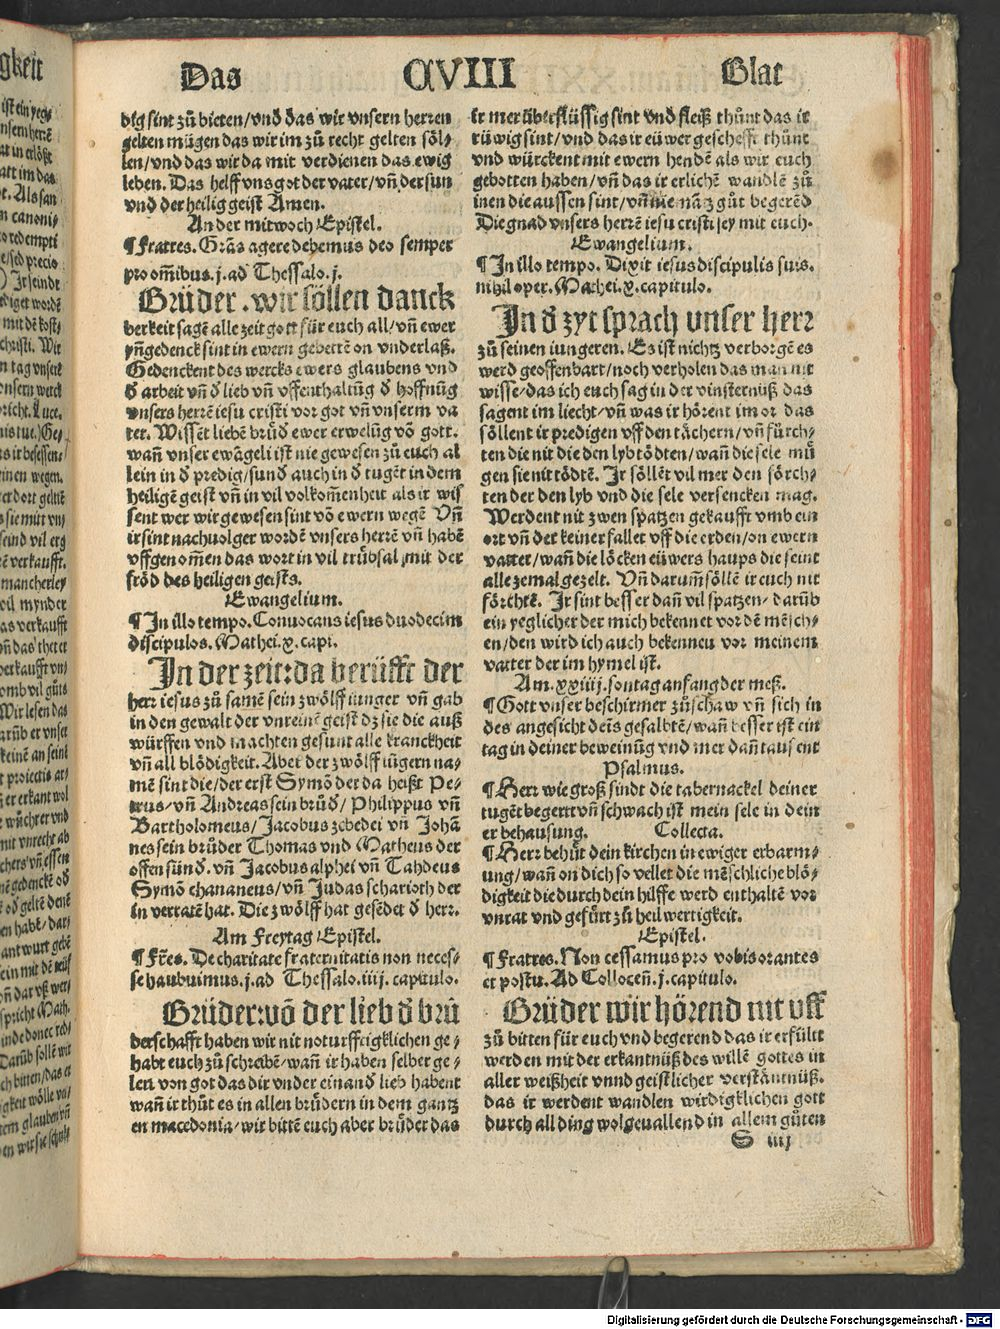 Das CVIII Blat
dig sint zů bieten/vnd das wir vnsern herren
gelten mügen das wir im zů recht gelten söl-
len/vnd das wir da mit verdienen das ewig
leben. Das helff vns got der vater/vñ der sun
vnd der heilig geist Amen.
An der mitwoch Epistel.
¶ Fratres. Grãs agere debemus deo semper
pro om̃ibus. j. ad Thessalo. j.
Brüder. wir söllen danck
berkeit sagẽ alle zeit gott für euch all/vñ ewer
yñgedenck sint in ewern gebettẽ on vnderlaß.
Gedenckent des wercks ewers glaubens vnd
đ arbeit vñ đ lieb vñ vffenthaltũg đ hoffnũg
vnsers herrẽ iesu cristi vor got vñ vnserm va
ter. Wissẽt liebẽ brůđ ewer erwelũg võ gott.
wañ vnser ewãgeli ist nie gewesen zů euch al
lein in đ predig/sunđ auch in đ tugẽt in dem
heiligẽ geist vñ in vil volkom̃enheit als ir wis
sent wer wir gewesen sint võ ewern wegẽ Vñ
ir sint nachuolger wordẽ vnsers herrẽ vñ habẽ
vffgenom̃en das wort in vil trübsal/mit der
fröd des heiligen geists.
Ewangelium.
¶ In illo tempo. Conuocans iesus duodecim
discipulos. Mathei. x. capi.
In der zeit: da berüfft der
herr iesus zů samẽ sein zwölff iunger vñ gab
in den gewalt der vnreinẽ geist dz sie die auß
würffen vnd machten gesunt alle kranckheit
vñ all blödigkeit. Aber der zwölff iũgern na-
mẽ sint die/der erst Symõ der da heißt Pe-
trus/vñ Andreas sein brůđ/Philippus vñ
Bartholomeus/Jacobus zebedei vñ Johã
nes sein brůder Thomas vnd Matheus der
offen sünđ. vñ Jacobus alphei vñ Tahdeus
Symõ chananeus/vñ Judas scharioth der
in verratẽ hat. Die zwölff hat gesẽdet đ herr.
Am Freytag Epistel.
¶ Fr̃es. De charitate fraternitatis non neces-
se habuimus. j. ad Thessalo. iiij. capitulo.
Brüder: võ der lieb đ brů
derschafft haben wir nit noturfftigklichen ge-
habt euch zů schreibẽ/wañ ir haben selber ge-
lert von got das dir vnder einanđ lieb habent
wañ ir thůt es in allen brüdern in dem gantz
en macedonia/wir bittẽ euch aber brüder das
ir mer überflüssig sint vnd fleiß thůnt das ir
rüwig sint/vnd das ir eüwer geschefft thůnt
vnd würckent mit ewern hendẽ als wir euch
gebotten haben/vñ das ir erlichẽ wandlẽ zů
inen die aussen sint/vñ nie mãtz gůt begerẽd
Die gnad vnsers herrẽ iesu cristi sey mit euch.
Ewangelium.
¶ In illo tempo. Dixit iesus discipulis suis.
nihil oper. Mathei. x. capitulo.
In đ zyt sprach vnser herr
zů seinen iungeren. Es ist nichtz verborgẽ es
werd geoffenbart/noch verholen das man nit
wisse/das ich euch sag in der vinsternüß das
sagent im liecht/vñ was ir hörent im or das
söllent ir predigen vff den tächern/vñ fürch-
ten die nit die den lyb tödten/wañ die sele mü
gen sie nit tödtẽ. Ir söllẽt vil mer den förch-
ten der den lyb vnd die sele versencken mag.
Werdent nit zwen spatzen gekaufft vmb ein
ort vñ der keiner fallet vff die erden/on ewern
vatter/wañ die löcken eüwers haups die seint
alle zemal gezelt. Vñ darum̃ söllẽ ir euch nit
förchtẽ. Ir sint besser dañ vil spatzen/darũb
ein yeglicher der mich bekennet vor dẽ mẽsch-
en/den wird ich auch bekennen vor meinem
vatter der im hymel ist.
Am. xxiiij. sontag anfang der meß.
¶ Gott vnser beschirmer zůschaw vñ sich in
des angesicht deĩs gesalbtẽ/wañ besser ist ein
tag in deiner beweinũg vnd mer dañ tausent
Psalmus.
¶ Herr wie groß sindt die tabernackel deiner
tugẽt begerrt vñ schwach ist mein sele in dein
er behausung. Collecta.
¶ Herr behüt dein kirchen in ewiger erbarm-
ung/wañ on dich so vellet die mẽschliche blö-
digkeit die durch dein hilffe werd enthaltẽ vor
vnrat vnd gefürt zů heilwertigkeit.
Epistel.
¶ Fratres. Non cessamus pro vobis orantes
et postu. Ad Collocen̄. j. capitulo.
Brüder wir hörend nit vff
zů bitten für euch vnd begerend das ir erfüllt
werden mit der erkantnüß des willẽ gottes in
aller weißheit vnnd geistlicher verständtnüß.
das ir werdent wandlen wirdigklichen gott
durch all ding wolgeuallend in allem gůten
S iiij
Digitalisierung gefördert durch die Deutsche Forschungsgemeinschaft - DFG